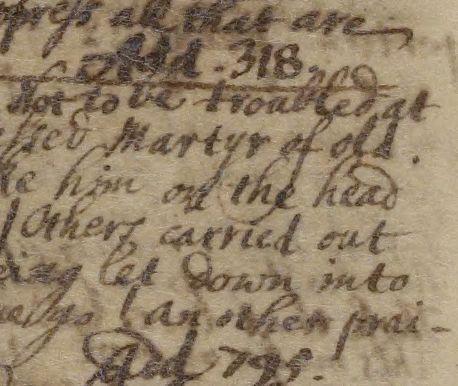 press all that are
Add. 318.
Not to be troubled at
essed Martyr of old.
ke him on the head
Others carried out
eing let down into
another prai-
Add 795.